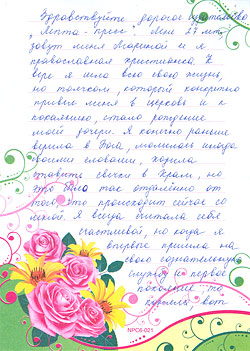 Здравствуйте, дорогое издательство
"Лепта-пресс". Мне 27 лет,
зовут меня Мариной и я
православная христианка. К
вере я шла всю свою жизнь,
но толчком, который конкретно
привел меня в Церковь и к
покаянию, стало рождение
моей дочери. Я конечно раньше
верила в Бога, молилась иногда
своими словами, ходила
ставить свечки в Храм, но
это было так отдалённо от
того что происходит сейчас со
мной. Я всегда считала себя
счастливой, но когда я
впервые пришла на
свою сознательную
службу и первое
покаяние, то
поняла вот
NPC6-021